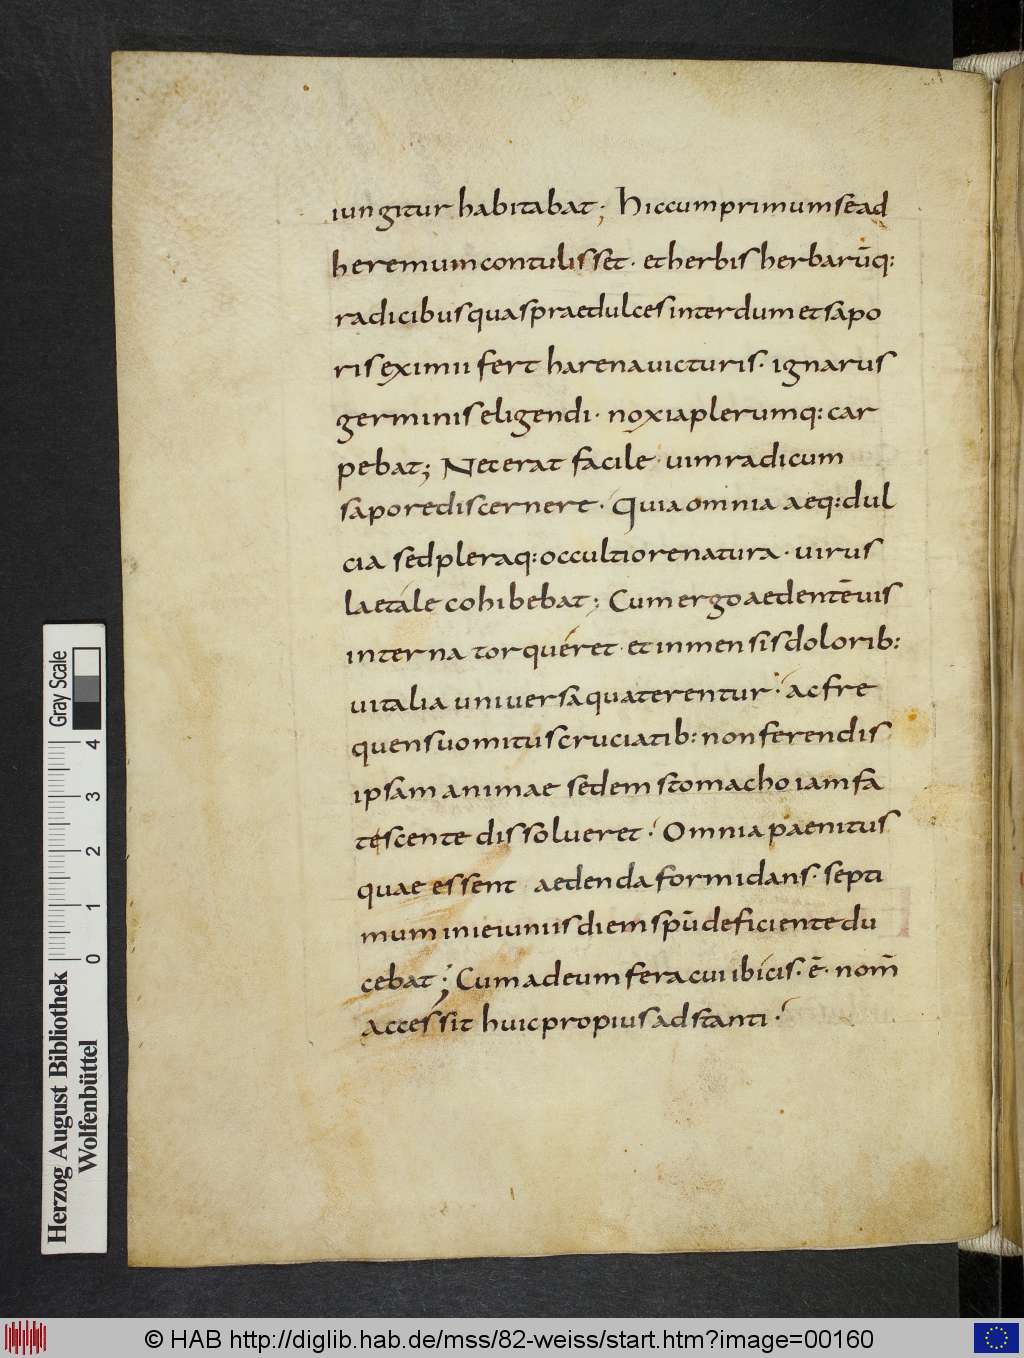 iungitur habitabat; Hic cum primum se ad
heremum contulisset · et herbis herbarūq:
radicibus quas praedulces interdum et sapo
ris eximii fert harena uicturis · ignarus
germinis eligendi · noxia plerumq: car
pebat; Nec erat facile · uim radicum
sapore discernere · Quia omnia aeq: dul
cia sed pleraq: occultiore natura · uirus
laetale cohibebat; Cum ergo aedentē uis
interna torqueret · et inmensis dolorib:
uitalia uniuersa quaterentur · ac fre
quens uomitus cruciatib: non ferendis
ipsam animae sedem stomacho iam fa
tescente dissolueret · Omnia paenitus
quae essent aedenda formidans · septi
mum in ieiuniis diem spū deficiente du
cebat; Cum ad eum fera cui ibicis · ē · nom̄
accessit huic propius adstanti ·
Gray Scale
4
3
2
1
0
Herzog August Bibliothek
Wolfenbüttel
© HAB http://diglib.hab.de/mss/82-weiss/start.htm?image=00160